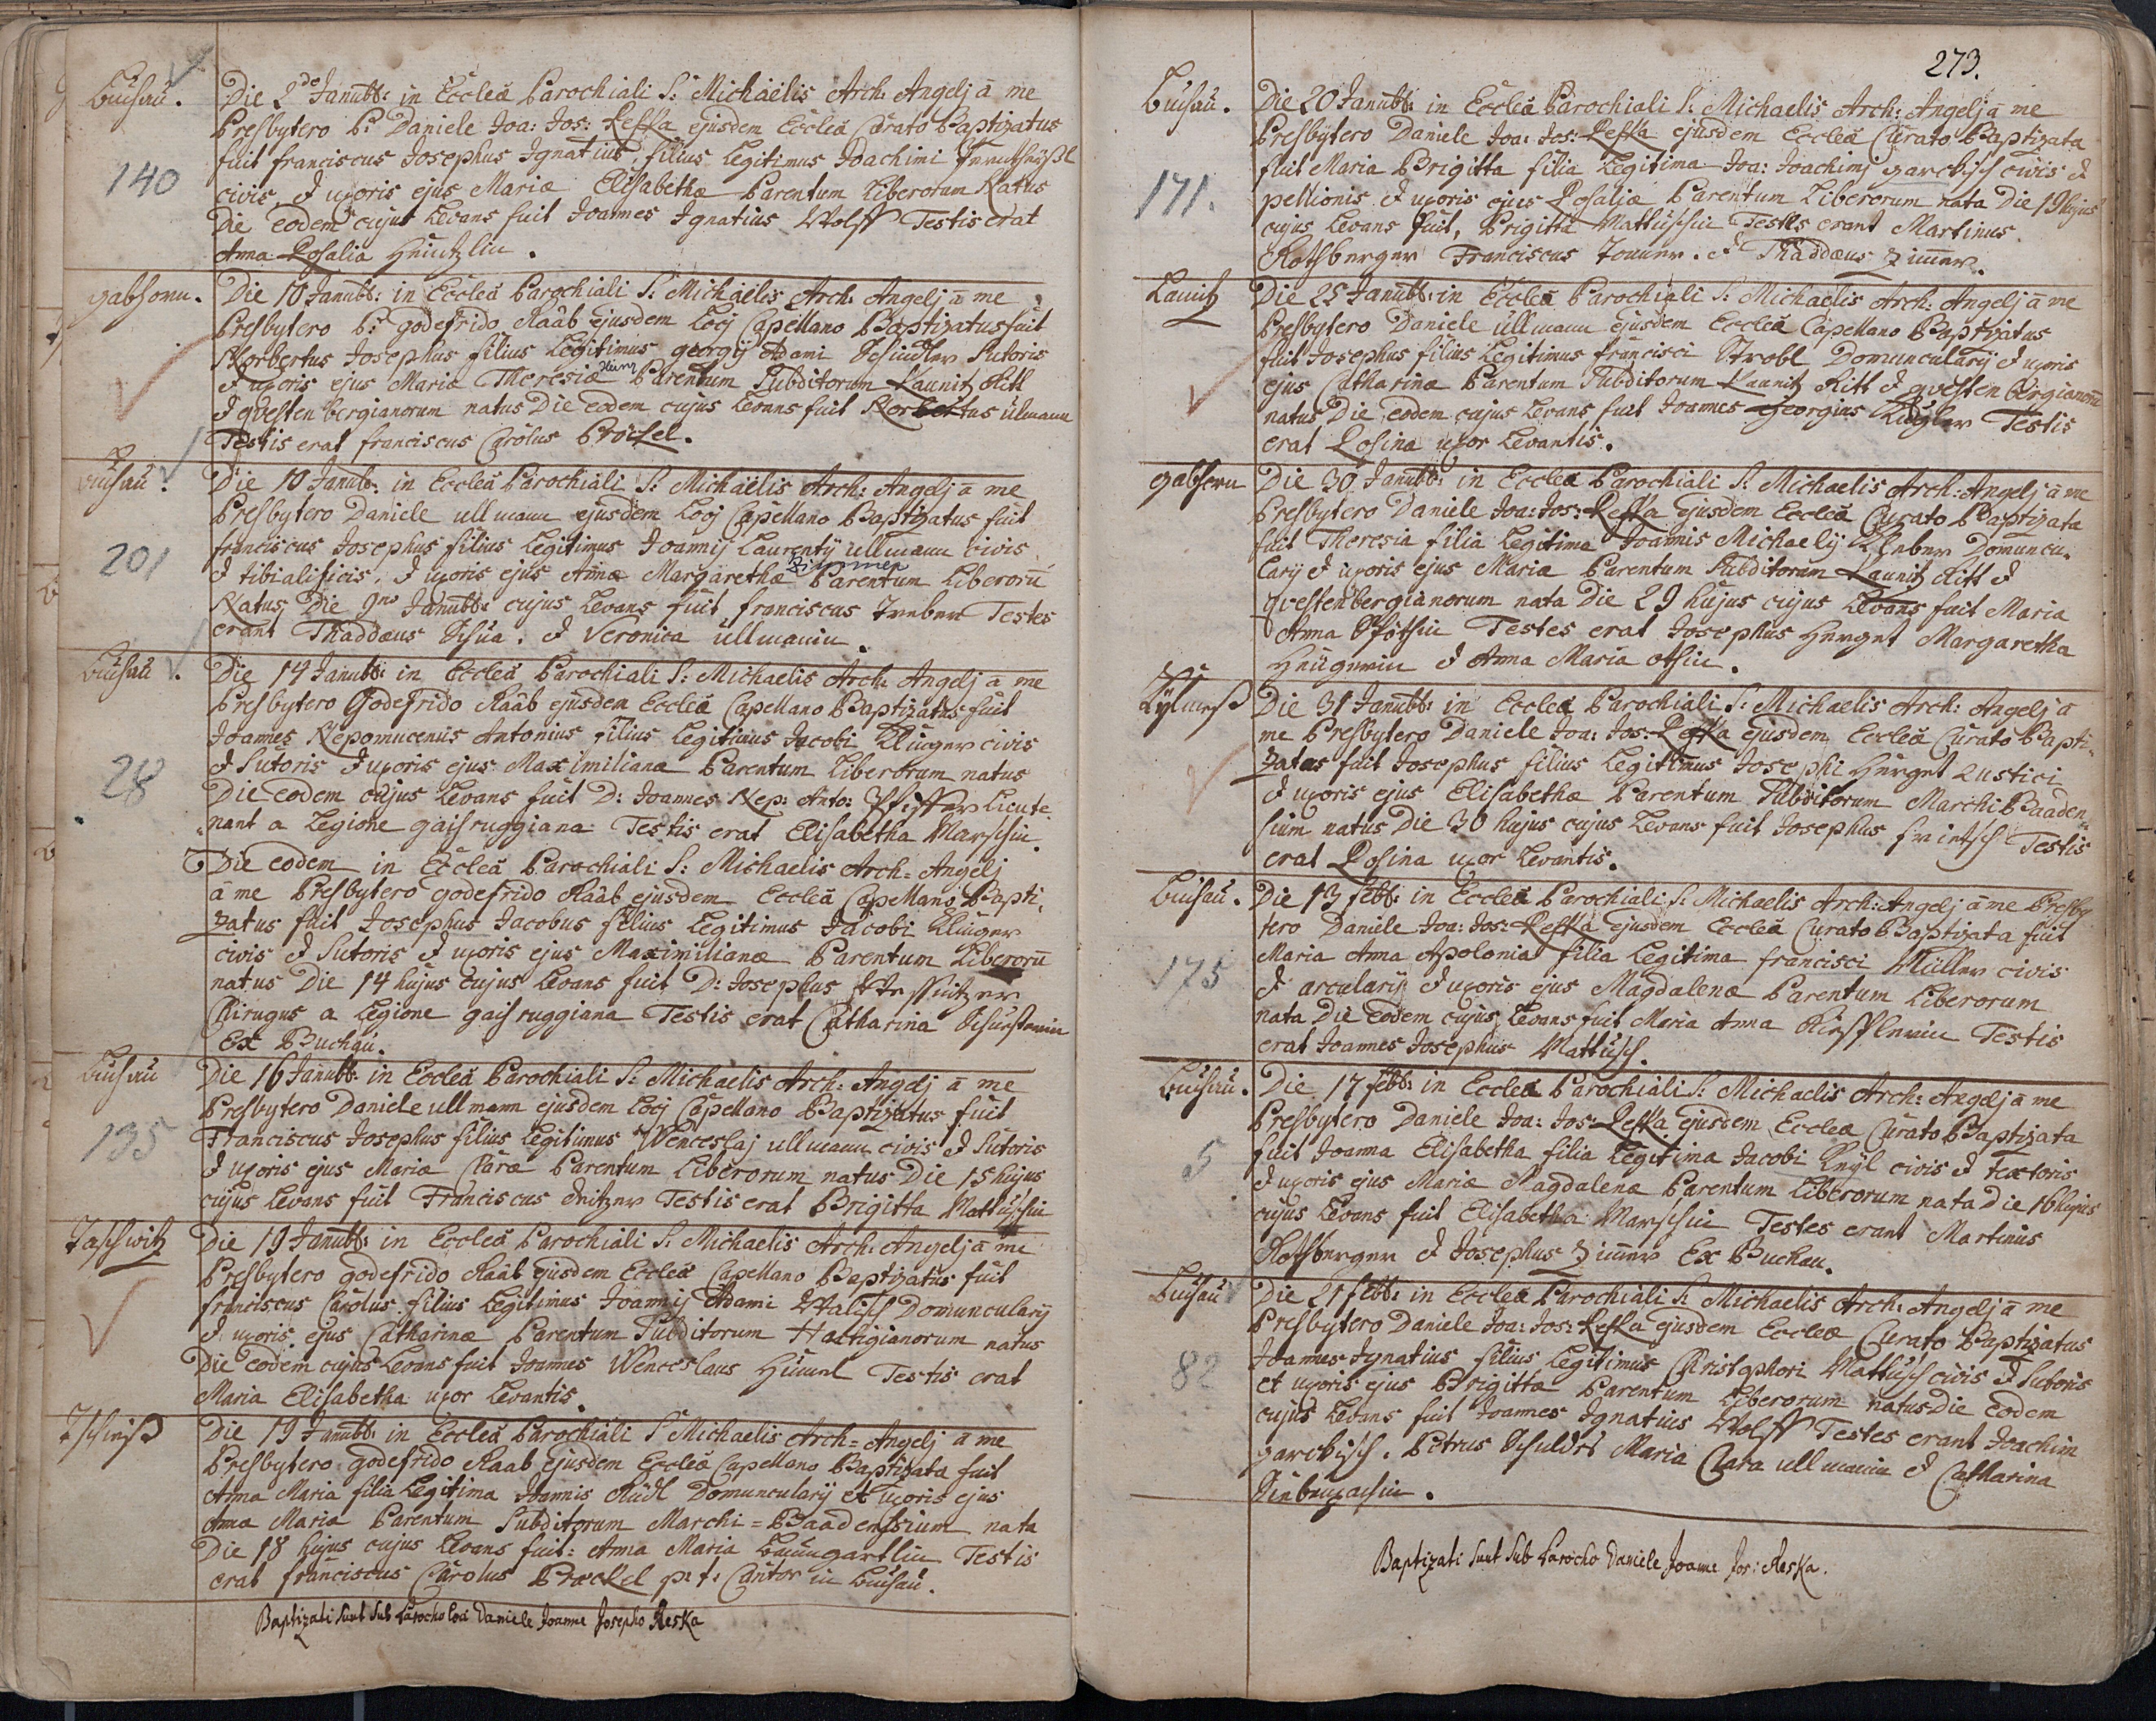 Buchau.
140
Die 2do Janübb: in Eccleâ Parochiali S: Michaëlis Arch: Angelj â me
Presbytero P: Daniele Joa: Jos: Reska ejusdem Eccleâ Cürato Baptizatus
fuit franciscus Josephus Ignatius, filius Legitimus Joachimi
civis, & uxoris ejus Mariæ Elisabethæ Parentum Liberorum Natus
Die eodem cujus Levans fuit Joannes Ignatius Wolff Testis erat
Anna Rosalia
gabhorn.
Die 10 Janübb: in Eccleâ Parochiali S: Michaëlis Arch: Angelj â me
Presbytero P: godefrido Raab ejusdem Locj Capellano Baptizatus fuit
Norbertus Josephus filius Legitimus georgij Adami Schindler Sutoris
& uxoris ejus Mariæ Theresiæ Parentum Subditorum Kaunitz Ritt
& qvesten bergianorum natus Die eodem cujus Levans fuit Norbertus ülmann
Testis erat franciscus Carolus
Buchau.
201
Die 10 Janübb: in Eccleâ Parochiali S: Michaëlis Arch: Angelj â me
Presbytero Daniele ullmann ejusdem Locj Capellano Baptizatus fuit
franciscus Josephus filius Legitimus Joannij Laurentij ullmann civis
& tibialificis, & uxoris ejus Annæ Margarethæ Zimmer Parentum Liberorū
Natus Die 9no Janübb: cujus Levans fuit franciscus Treber Testes
erant Thaddæus Schüa. & Veronica üllmanin.
Buchau.
28
Die 14 Janübb: in Eccleâ Parochiali S: Michaelis Arch: Angelj â me
Presbytero Godefrido Raab ejusdem Eccleâ Capellano Baptizatus fuit
Joannes Nepomucenus Antonius filius Legitimus Jacobi Klinger civis
& Sutoris & uxoris ejus Maximilianæ Parentum Liberorum natus
Die eodem cujus Levans fuit D: Joannes Nep: Anto: Pfiffer Lieute
nant a Legione gaisruggiana Testis erat Elisabetha Marschin.
Die eodem in Eccleâ Parochiali S: Michaelis Arch: Angelj
â me Presbytero godefrido Raab ejusdem Eccleâ Capellano Bapti,
zatus fuit Josephus Jacobus filius Legitimus Jacobi Klinger
civis & Sutoris & uxoris ejus Maximilianæ Parentum Liberorū
natus Die 14 hujus cujus Levans fuit D: Josephus
Chirugus a Legione gaisruggiana Testis erat Catharina
Ex Buchau.
Buchau
135
Die 16 Janübb: in Eccleâ Parochiali S: Michaelis Arch: Angelj â me
Presbytero Daniele ullmann ejusdem Locj Capellano Baptizatus fuit
Franciscus Josephus filius Legitimus Wenceslaj ullmann civis & Sutoris
& uxoris ejus Mariæ Claræ Parentum Liberorum natus Die 15 hujus
cujus Levans fuit Franciscus Testis erat Brigitta Mattuschin
Taschwitz
Die 19 Janübb: in Eccleâ Parochiali S: Michaelis Arch: Angelj â me
Presbytero godefrido Raab ejusdem Eccleâ Capellano Baptizatus fuit
franciscus Carolus filius Legitimus Joannij Adami Walisch Domuncularij
& uxoris ejus Catharinæ Parentum Subditorum Hartigianorum natus
Die eodem cujus Levans fuit Joannes Wenceslaus Himml Testis erat
Maria Elisabetha uxor Levantis.
Die 19 Janübb: in Eccleâ Parochiali S: Michaelis Arch: Angelj â me
Presbytero godefrido Raab ejusdem Eccleâ Capellano Baptizata fuit
Anna Maria filia Legitima Joannis Rüdl Domuncularij et uxoris ejus
Annæ Mariæ Parentum Subditorum Marchi=Baadensium nata
Die 18 hujus cujus Levans fuit: Anna Maria Baumgartlin Testis
erat franciscus Carolus p: t: Cantor in Buchau.
Baptizati Sunt Sub Parocho loci Daniele Joanne Josepho Reska
273.
Buchau.
171.
Die 20 Janübb: in Eccleâ Parochiali S: Michaelis Arch: Angelj â me
Presbytero Daniele Joa: Jos: Reska ejusdem Eccleâ Curato Baptizata
fuit Maria Brigitta filia Legitima Joa: Joachimj garckisch civis &
pellionis, & uxoris ejus Rosaliæ Parentum Liberorum nata Die 19 hujus
cujus Levans fuit, Brigitta Mattuschin Testes erant Martinus
Rothberger Franciscus & Thaddæus Zimer.
Launitz
Die 25 Janübb: in Eccleâ Parochiali S: Michaelis Arch: Angelj â me
Presbytero Daniele üllmann ejusdem Eccleâ Capellano Baptizatus
fuit Josephus filius Legitimus francisci Strobl Domuncularij & uxoris
ejus Catharinæ Parentum Subditorum Kaunitz Ritt & qvesten bergianorū
natus Die eodem cujus Levans fuit Joannes Georgius Kugler Testis
erat Rosina uxor Levantis.
gabhorn
Die 30 Janübb: in Eccleâ Parochiali S: Michaelis Arch: Angelj â me
Presbytero Daniele Joa: Jos: Reska ejusdem Eccleâ Curato Baptizata
fuit Theresia filia Legitima Joannis Michaelij Domuncu,
larij & uxoris ejus Mariæ Parentum Subditorum Kaunitz Ritt &
qvestenbergianorum nata Die 29 hujus cujus Levans fuit Maria
Anna Testes erat Josephus Herget Margaretha
& Anna Maria
Die 31 Janübb: in Eccleâ Parochiali S: Michaelis Arch: Angelj â
me Presbytero Daniele Joa: Jos: Reska ejusdem Eccleâ Curato Bapti,
zatus fuit Josephus filius Legitimus Josephi Herget Rustici
& uxoris ejus Elisabethæ Parentum Subditorum Marchi Baaden
sium natus Die 30 hujus cujus Levans fuit Josephus Testis
erat Rosina uxor Levantis.
Buchau.
175
Die 13 febb: in Eccleâ Parochiali S: Michaelis Arch: Angelj â me Presby
tero Daniele Joa: Jos: Reska ejusdem Eccleâ Curato Baptizata fuit
Maria Anna Apolonia filia Legitima francisci Müller civis
& arcularij & uxoris ejus Magdalenæ Parentum Liberorum
nata Die eodem cujus Levans fuit Maria Anna Testis
erat Joannes Josephus Mattusch.
Buchau.
5
Die 17 febb: in Eccleâ Parochiali S: Michaelis Arch: Angelj â me
Presbytero Daniele Joa: Jos: Reska ejusdem Eccleâ Curato Baptizata
fuit Joanna Elisabetha filia Legitima Jacobi civis & textoris
& uxoris ejus Mariæ Magdalenæ Parentum Liberorum nata Die 16 hujus
cujus Levans fuit Elisabetha Marschin Testes erant Martinus
Rothberger & Josephus Zimer Ex Buchau.
Buchau
82
Die 21 febb: in Eccleâ Parochiali S: Michaelis Arch: Angelj â me
Presbytero Daniele Joa: Jos: Reska ejusdem Eccleâ Curato Baptizatus
Joannes Ignatius filius Legitimus Christophori Mattusch civis & Sutoris
et uxoris ejus Brigittæ Parentum Liberorum natus Die Eodem
cujus Levans fuit Joannes Ignatius Wolff Testes erant Joachim
garckisch. Petrus Schuldes Maria Clara ullmanin & Catharina
Baptizati Sunt Sub Parocho Daniele Joanne Jos: Reska.